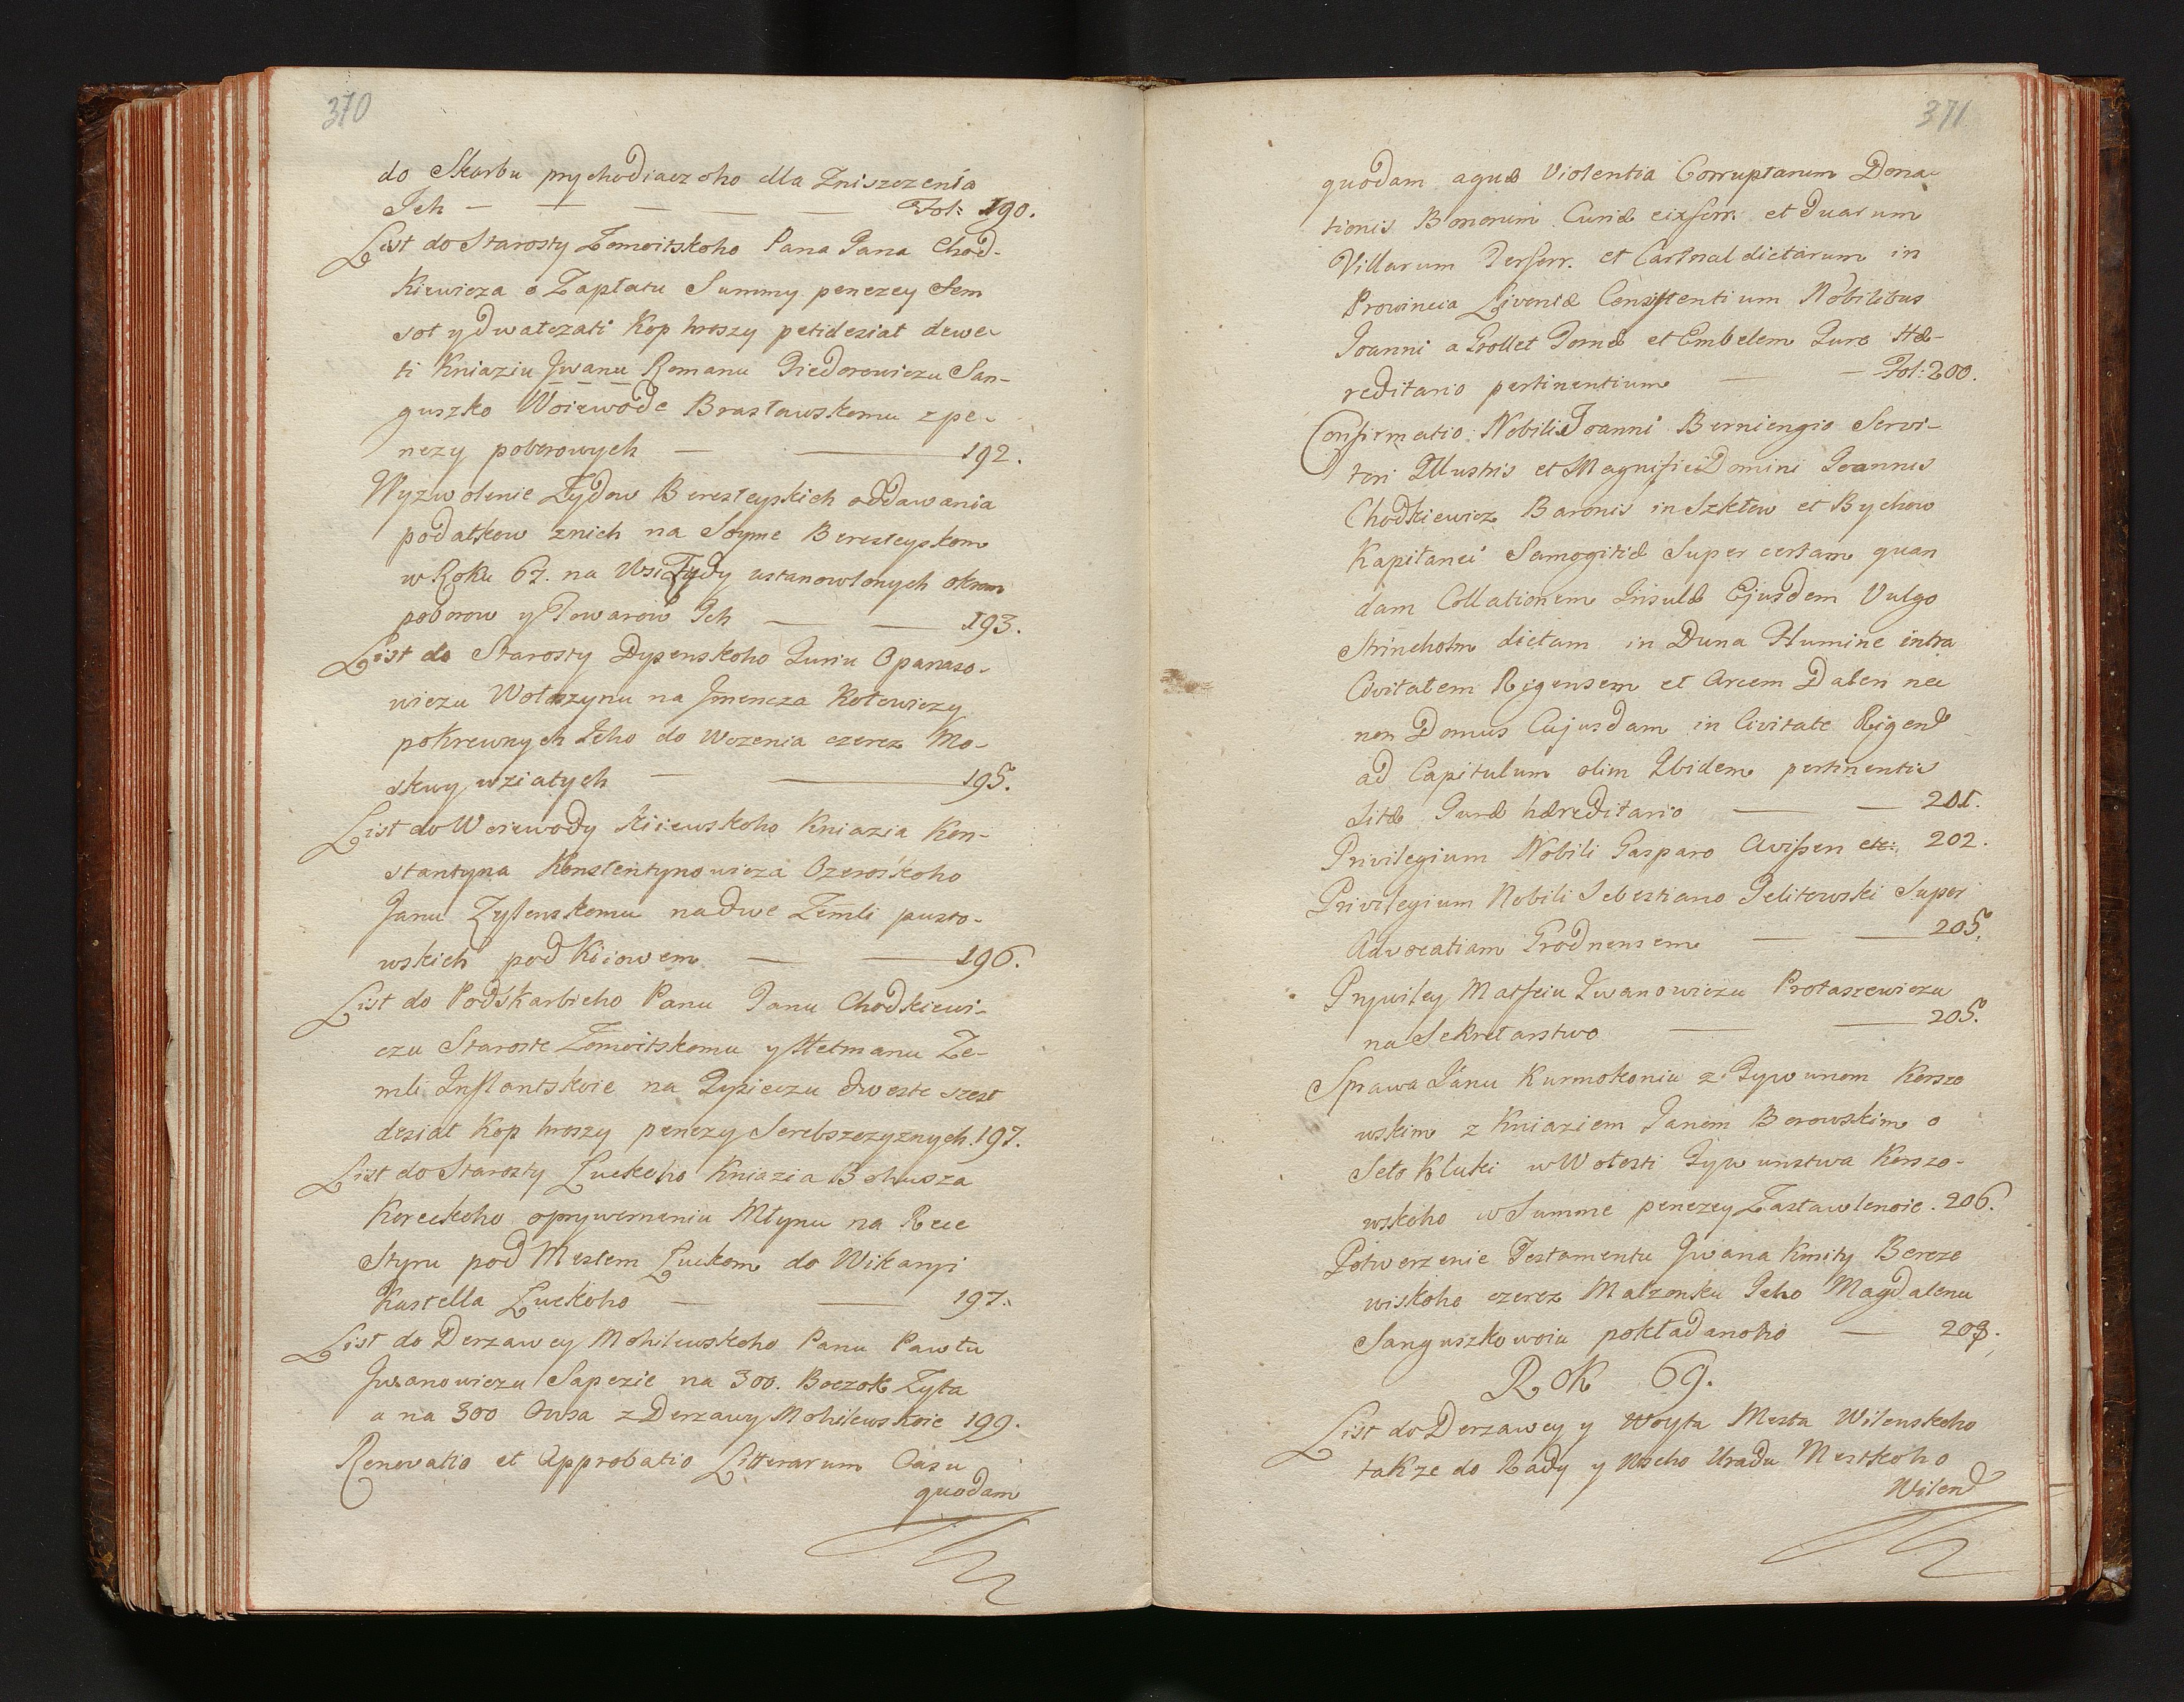 370
do Skarbu prychodiaczoho dla Zniszczenia
Ich — — — — — Fol: 190.
List do Starosty Zomoitskoho Pana Jana Chod-
kiewicza o Zapłatu Summy penezey Sem
sot y dwatczati Kop hroszy petidesiat dewe-
ti Kniaziu Jwanu Romanu Fiedorowiczu San-
guszko Woiewode Brasławskomu z pe-
nezy poborowych — — 192.
Wyzwolenie Zydow Beresteyskich oddawania
podatkow znich na Soyme Beresteyskom
w Roku 67. na Wsi Zydy ustanowlonych okrom
poborow y Towarow Ich — — 193.
List do Starosty Dysenskoho Juriu Opanaso-
wiczu Wołszynu na Jmencza Kotowiczy
pokrewnych Jeho do Wezenia czerez Mo-
skwy wziatych — — 195.
List do Woiewody Kiiewskoho Kniazia Kon-
stantyna Konstentynowicza Ozeroskoho
Janu Zylenskomu na dwe Zemli pusto-
wskich pod Kiiowem — — 196.
List do Podskarbieho Panu Janu Chodkiewi-
czu Staroste Zomoitskomu y Hetmanu Ze-
mli Inflantskoie na Tysieczu dweste szest
desiat Kop hroszy penezy Serebszczyznych. 197.
List do Starosty Łuckoho Kniazia Bohusza
Koreckoho o prywerneniu Młynu na Rece
Styru pod Mestem Łuckom do Wikaryi
Kastella Łuckoho — — 197.
List do Derzawcy Mohilewskoho Panu Pawłu
Jwanowiczu Sapezie na 300. Boczok Zyta
a na 300 Owsa z Derzawy Mohilewskoie 199.
Renovatio et Approbatio Litterarum Casu
quodam
371
quodam aquæ Violentia Corruptarum Dona-
tionis Bonorum Curiæ et duarum
Villarum et dictarum in
Provincia Livoniæ Consistentium Nobilibus
Joanni a et Embelem Jure Hæ-
reditario pertinentium — — Fol: 200.
Confirmatio Nobili Joanni Berniengio Servi-
tori Illustris et Magnifici Domini Joannis
Chodkiewicz Baronis in Szkłow et Bychow
Kapitanei Samogitiæ Super certam quan
dam Collationem Insulæ Ejusdem Vulgo
Strincholm dictam in Duna Flumine intra
Civitatem Rigensem et Arcem Dalen nec
non Domus Cujusdam in Civitate Rigens
ad Capitulum olim Ibidem pertinentis
Sitæ Juræ hæreditario — — 201.
Privilegium Nobili Gasparo Avissen etc: 202.
Privilegium Nobili Sebestiano Pelitowski Super
Advocatiam Grodnensem — — 205.
Prywiley Matfeiu Iwanowiczu Protaszewiczu
na Sekretarstwo — — 205.
Sprawa Panu Kurmokoniu z Tywunom Korszo
wskim z Kniaziem Janem Borowskim o
Seło Kłuki w Wołosti Tywunstwa Korszo-
wskoho w Summe penezey Zastawlenoie. 206.
Potwerzenie Testamentu Jwana Kmity Berezo
wiskoho czerez Małzonku Jeho Magdalenu
Sanguszkowoiu pokładanoho — 208.
Rok 69.
List do Derzawcy y Woyta Mesta Wilenskoho
takze do Rady y Wseho Uradu Mestskoho
Wilens